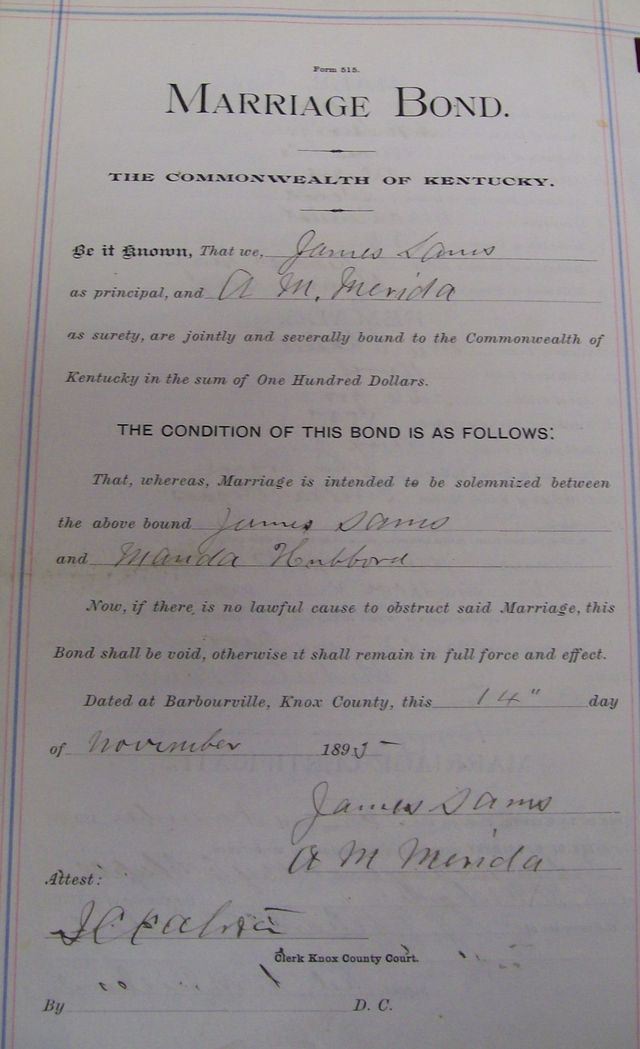 Form 515.
MARRIAGE BOND.
THE COMMONWEALTH OF KENTUCKY.
Be it Known, That we, James Sams
as principal, and A M. Merida
as surety, are jointly and severally bound to the Commonwealth of
Kentucky in the sum of One Hundred Dollars.
THE CONDITION OF THIS BOND IS AS FOLLOWS:
That, whereas, Marriage is intended to be solemnized between
the above bound James Sams
and Manda Hubbord
Now, if there is no lawful cause to obstruct said Marriage, this
Bond shall be void, otherwise it shall remain in full force and effect.
Dated at Barbourville, Knox County, this 14" day
of November 1895
James Sams
A M Merida
Attest:
Clerk Knox County Court.
By D. C.